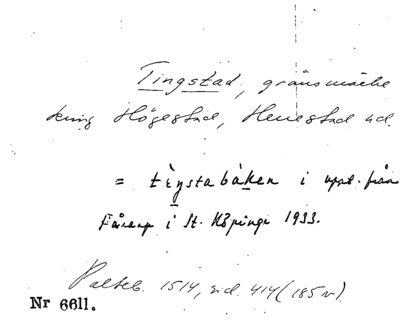 Tingstad, gränsmärke
kring Högestad, Henestad ⁠o⁠d.
= tèystabàken i uppt. från
Fårarp i St. Köpinge 1933.
Palteb. 1514, sid. 414 (185 v).
Nr 6611.